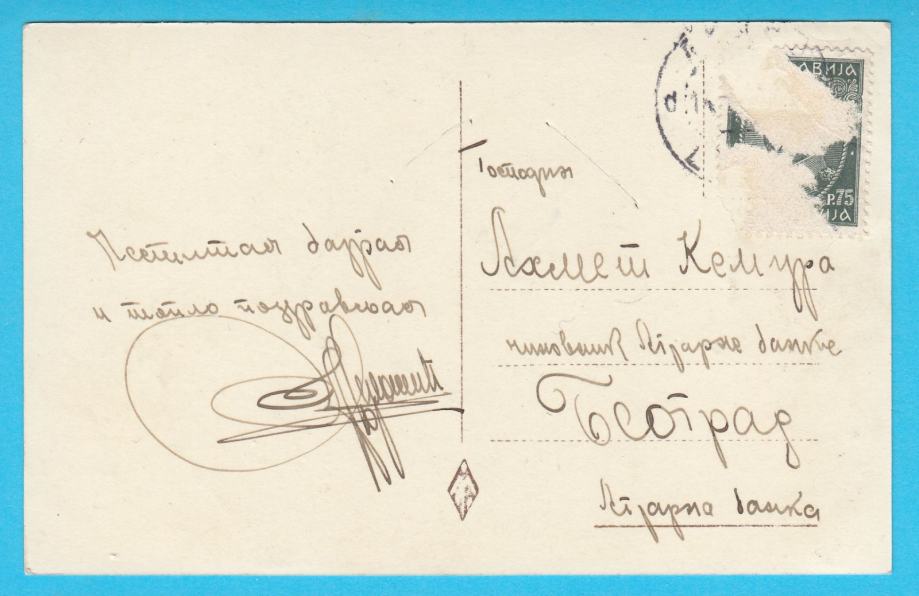 Честитам бајрам
и топло поздрављам
Господин
Ахмет Кемура
чиновник Аграрне банке
Београд
Аграрна банка
АВИЈА
Р.75
ИЈА